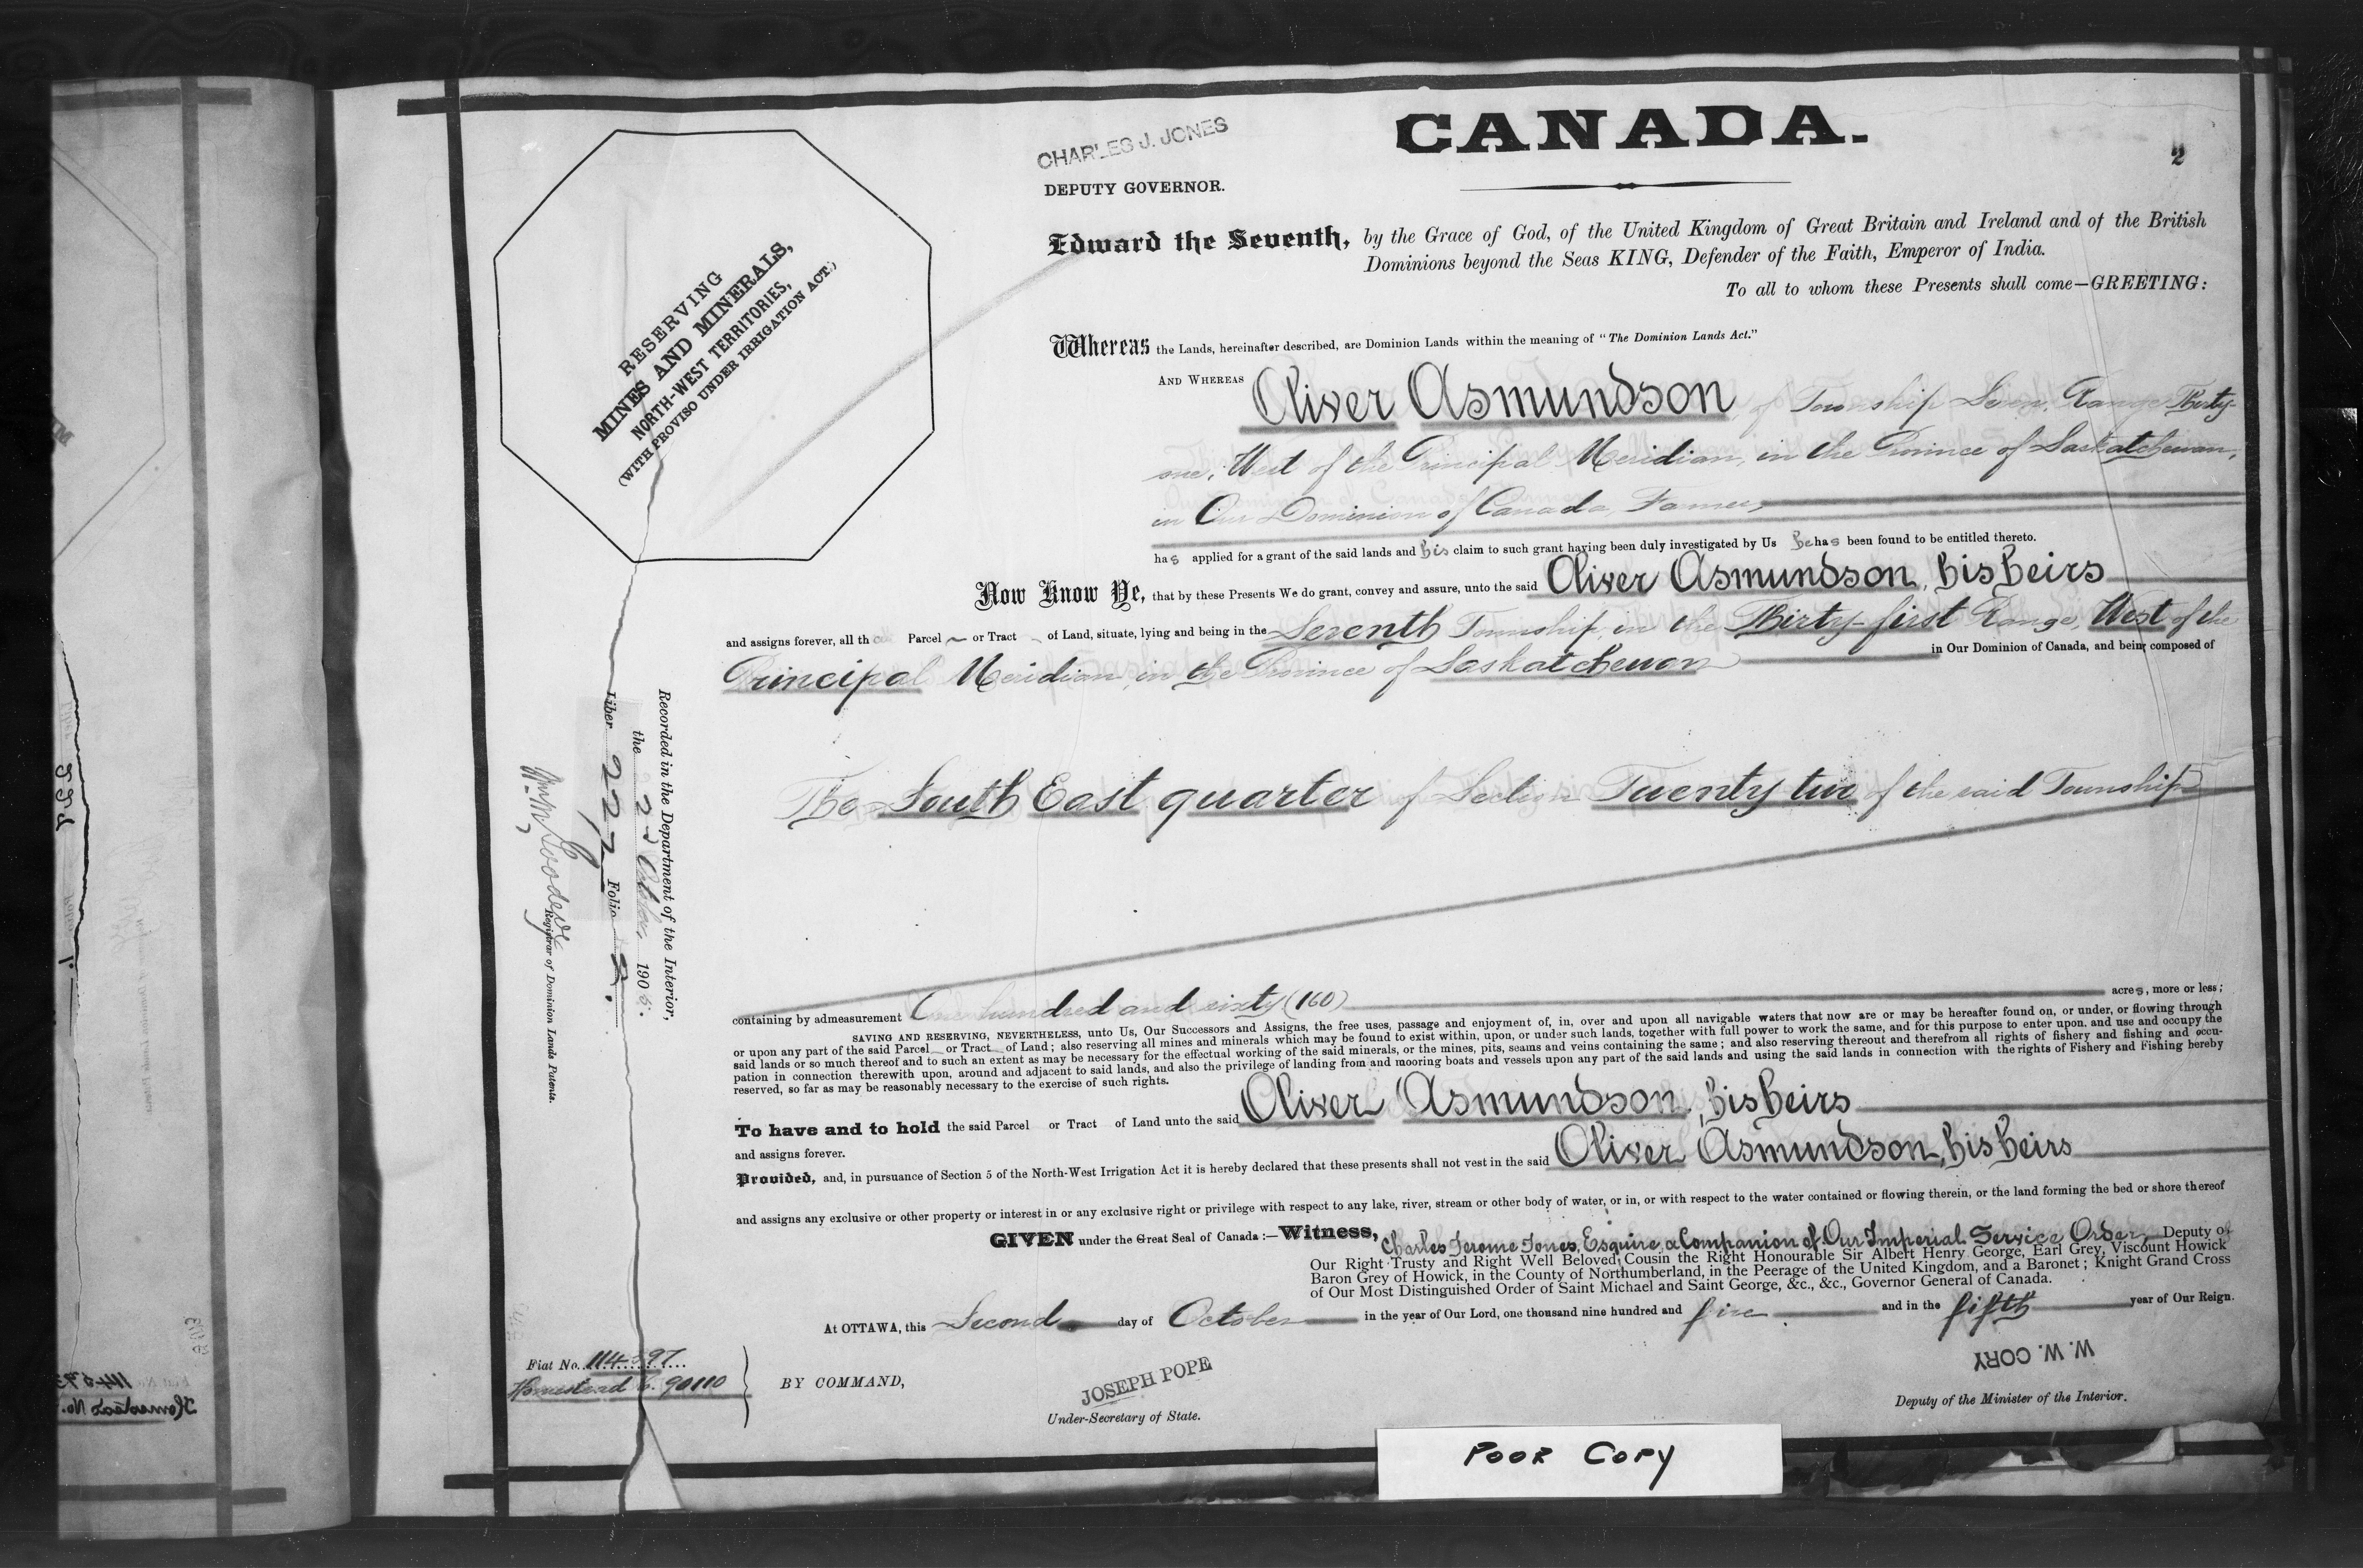 CANADA.
2
CHARLES J. JONES
DEPUTY GOVERNOR.
RESERVING
MINES AND MINERALS,
NORTH-WEST TERRITORIES,
(WITH PROVISO UNDER IRRIGATION ACT.)
Edward the Seventh, by the Grace of God, of the United Kingdom of Great Britain and Ireland and of the British
Dominions beyond the Seas KING, Defender of the Faith, Emperor of India.
To all to whom these Presents shall come—GREETING:
Whereas the Lands, hereinafter described, are Dominion Lands within the meaning of "The Dominion Lands Act."
AND WHEREAS Oliver Asmundson, of Township Seven, Range Thirty-
one, West of the Principal Meridian, in the Province of Saskatchewan,
in Our Dominion of Canada, Farmer,
has applied for a grant of the said lands and his claim to such grant having been duly investigated by Us he has been found to be entitled thereto.
Now Know Ye, that by these Presents We do grant, convey and assure, unto the said Oliver Asmundson, his heirs
and assigns forever, all th Parcel or Tract of Land, situate, lying and being in the Seventh Township, in the Thirty-first Range, West of the
Principal Meridian, in the Province of Saskatchewan in Our Dominion of Canada, and being composed of
The South East quarter of Section Twenty two of the said Township
containing by admeasurement One hundred and sixty (160) acres, more or less;
SAVING AND RESERVING, NEVERTHELESS, unto Us, Our Successors and Assigns, the free uses, passage and enjoyment of, in, over and upon all navigable waters that now are or may be hereafter found on, or under, or flowing through
or upon any part of the said Parcel or Tract of Land; also reserving all mines and minerals which may be found to exist within, upon, or under such lands, together with full power to work the same, and for this purpose to enter upon, and use and occupy the
said lands or so much thereof and to such an extent as may be necessary for the effectual working of the said minerals, or the mines, pits, seams and veins containing the same; and also reserving thereout and therefrom all rights of fishery and fishing and occu-
pation in connection therewith upon, around and adjacent to said lands, and also the privilege of landing from and mooring boats and vessels upon any part of the said lands and using the said lands in connection with the rights of Fishery and Fishing hereby
reserved, so far as may be reasonably necessary to the exercise of such rights.
To have and to hold the said Parcel or Tract of Land unto the said Oliver Asmundson, his heirs
and assigns forever.
Provided, and, in pursuance of Section 5 of the North-West Irrigation Act it is hereby declared that these presents shall not vest in the said Oliver Asmundson, his heirs
and assigns any exclusive or other property or interest in or any exclusive right or privilege with respect to any lake, river, stream or other body of water, or in, or with respect to the water contained or flowing therein, or the land forming the bed or shore thereof
GIVEN under the Great Seal of Canada:—Witness, Charles Jerome Jones, Esquire, a Companion of Our Imperial Service Order, Deputy of
Our Right Trusty and Right Well Beloved Cousin the Right Honourable Sir Albert Henry George, Earl Grey, Viscount Howick
Baron Grey of Howick, in the County of Northumberland, in the Peerage of the United Kingdom, and a Baronet; Knight Grand Cross
of Our Most Distinguished Order of Saint Michael and Saint George, &c., &c., Governor General of Canada.
At OTTAWA, this Second day of October in the year of Our Lord, one thousand nine hundred and five and in the fifth year of Our Reign.
Fiat No. 114397
Homestead No. 90110
BY COMMAND,
JOSEPH POPE
Under-Secretary of State.
W. W. CORY
Deputy of the Minister of the Interior.
Recorded in the Department of the Interior,
the October, 1905.
Liber 227 Folio 2.
Registrar of Dominion Lands Patents.
POOR COPY